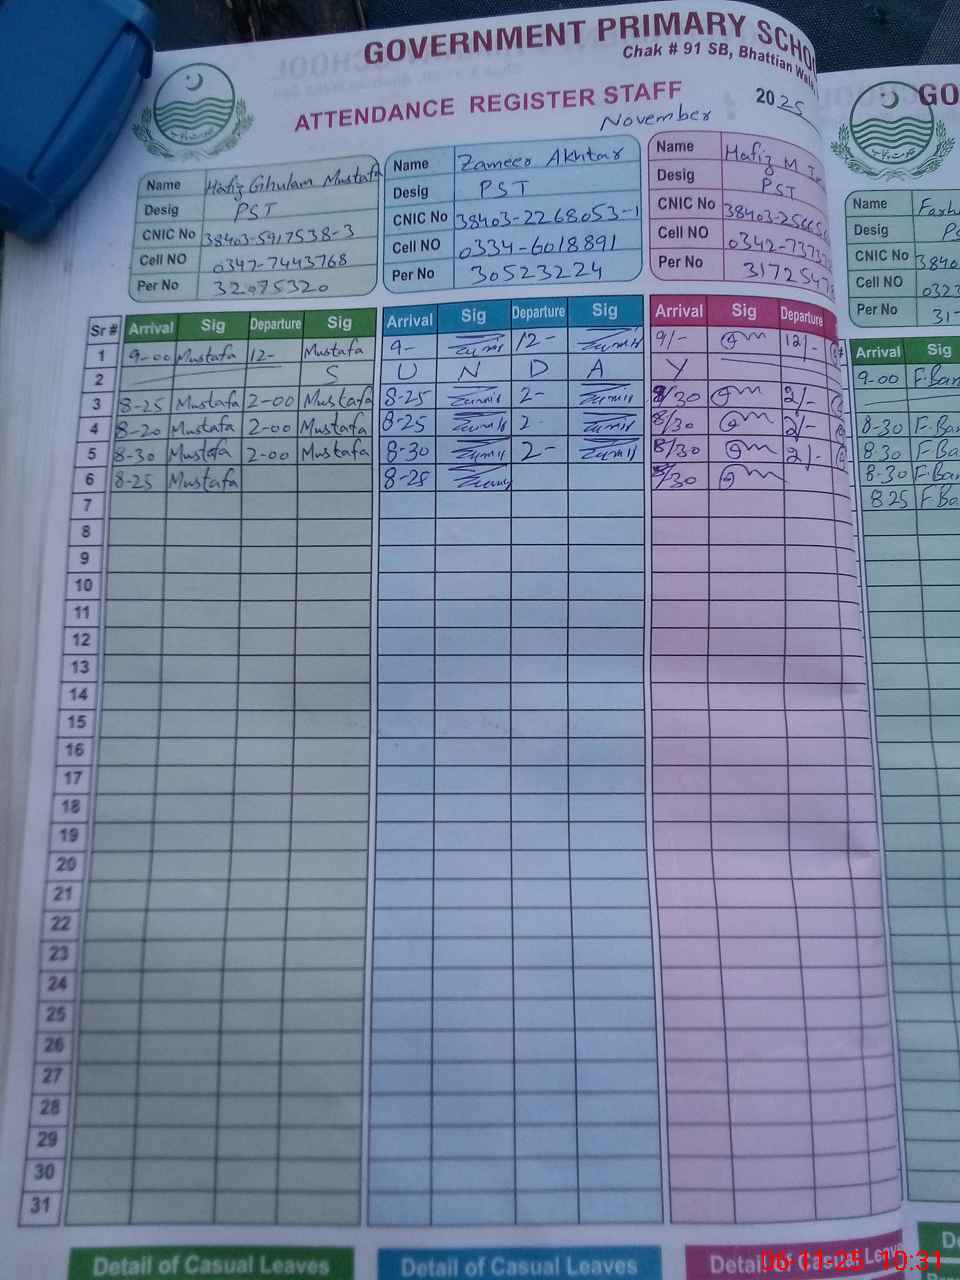 GOVERNMENT PRIMARY SCHO
Chak # 91 SB, Bhattian Wala
ATTENDANCE REGISTER STAFF 2025
November
Name Hafiz Ghulam Mustafa
Desig PST
CNIC No 38403-5917538-3
Cell NO 0347-7443768
Per No 32075320
Name Zameer Akhtar
Desig PST
CNIC No 38403-2268053-1
Cell NO 0334-6018891
Per No 30523224
Name Hafiz M
Desig PST
CNIC No 38403-256
Cell NO 0342-737
Per No 3172547
GO
Name Farh
Desig P
CNIC No 3840
Cell NO 0323
Per No 31-
Sr # Arrival Sig Departure Sig Arrival Sig Departure Sig Arrival Sig Departure Arrival Sig
1 9-00 Mustafa 12- Mustafa 9- 12- 9/- 12/- 9-00 F.Ban
2 S U N D A Y
3 8-25 Mustafa 2-00 Mustafa 8-25 2- 8/30 2/- 8-30 F.Ban
4 8-20 Mustafa 2-00 Mustafa 8-25 2- 8/30 2/- 8 30 F.Ban
5 8-30 Mustafa 2-00 Mustafa 8-30 2- 8/30 2/- 8-30 F.Ban
6 8-25 Mustafa 8-25 8/30 8 25 F.Ba
7
8
9
10
11
12
13
14
15
16
17
18
19
20
21
22
23
24
25
26
27
28
29
30
31
Detail of Casual Leaves Detail of Casual Leaves Detail of Casual Leave De
06-11-25 10:31